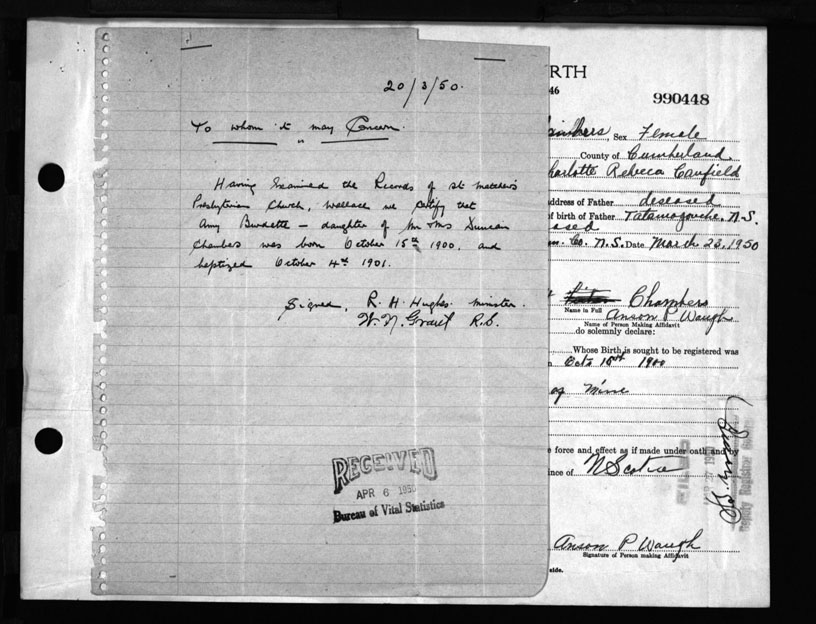 20/3/50.
To whom it may Concern.
Having Examined the Records of St. Matthew's
Presbyterian Church, Wallace we Certify that
Amy Burdette – daughter of Mr & Mrs Duncan
Chambers was born October 15th 1900. and
baptized October 4th 1901.
Signed, R. H. Hughes. minister.
R.S.
RECEIVED
APR 6 1950
Bureau of Vital Statistics
RTH
46
990448
, Sex Female
County of Cumberland
harlotte Rebecca Canfield
ddress of Father deseased
of birth of Father Tatamagouche. N.S.
ased
Co. N.S. Date March 23, 1950
Chambers
Name in Full
Anson P Waugh
Name of Person Making Affidavit
do solemnly declare:
Whose Birth is sought to be registered was
Octo 15st 1900
of mine
force and effect as if made under oath and by
ince of N Scotia
Deputy Registrar
Anson P Waugh
Signature of Person making Affidavit
side.